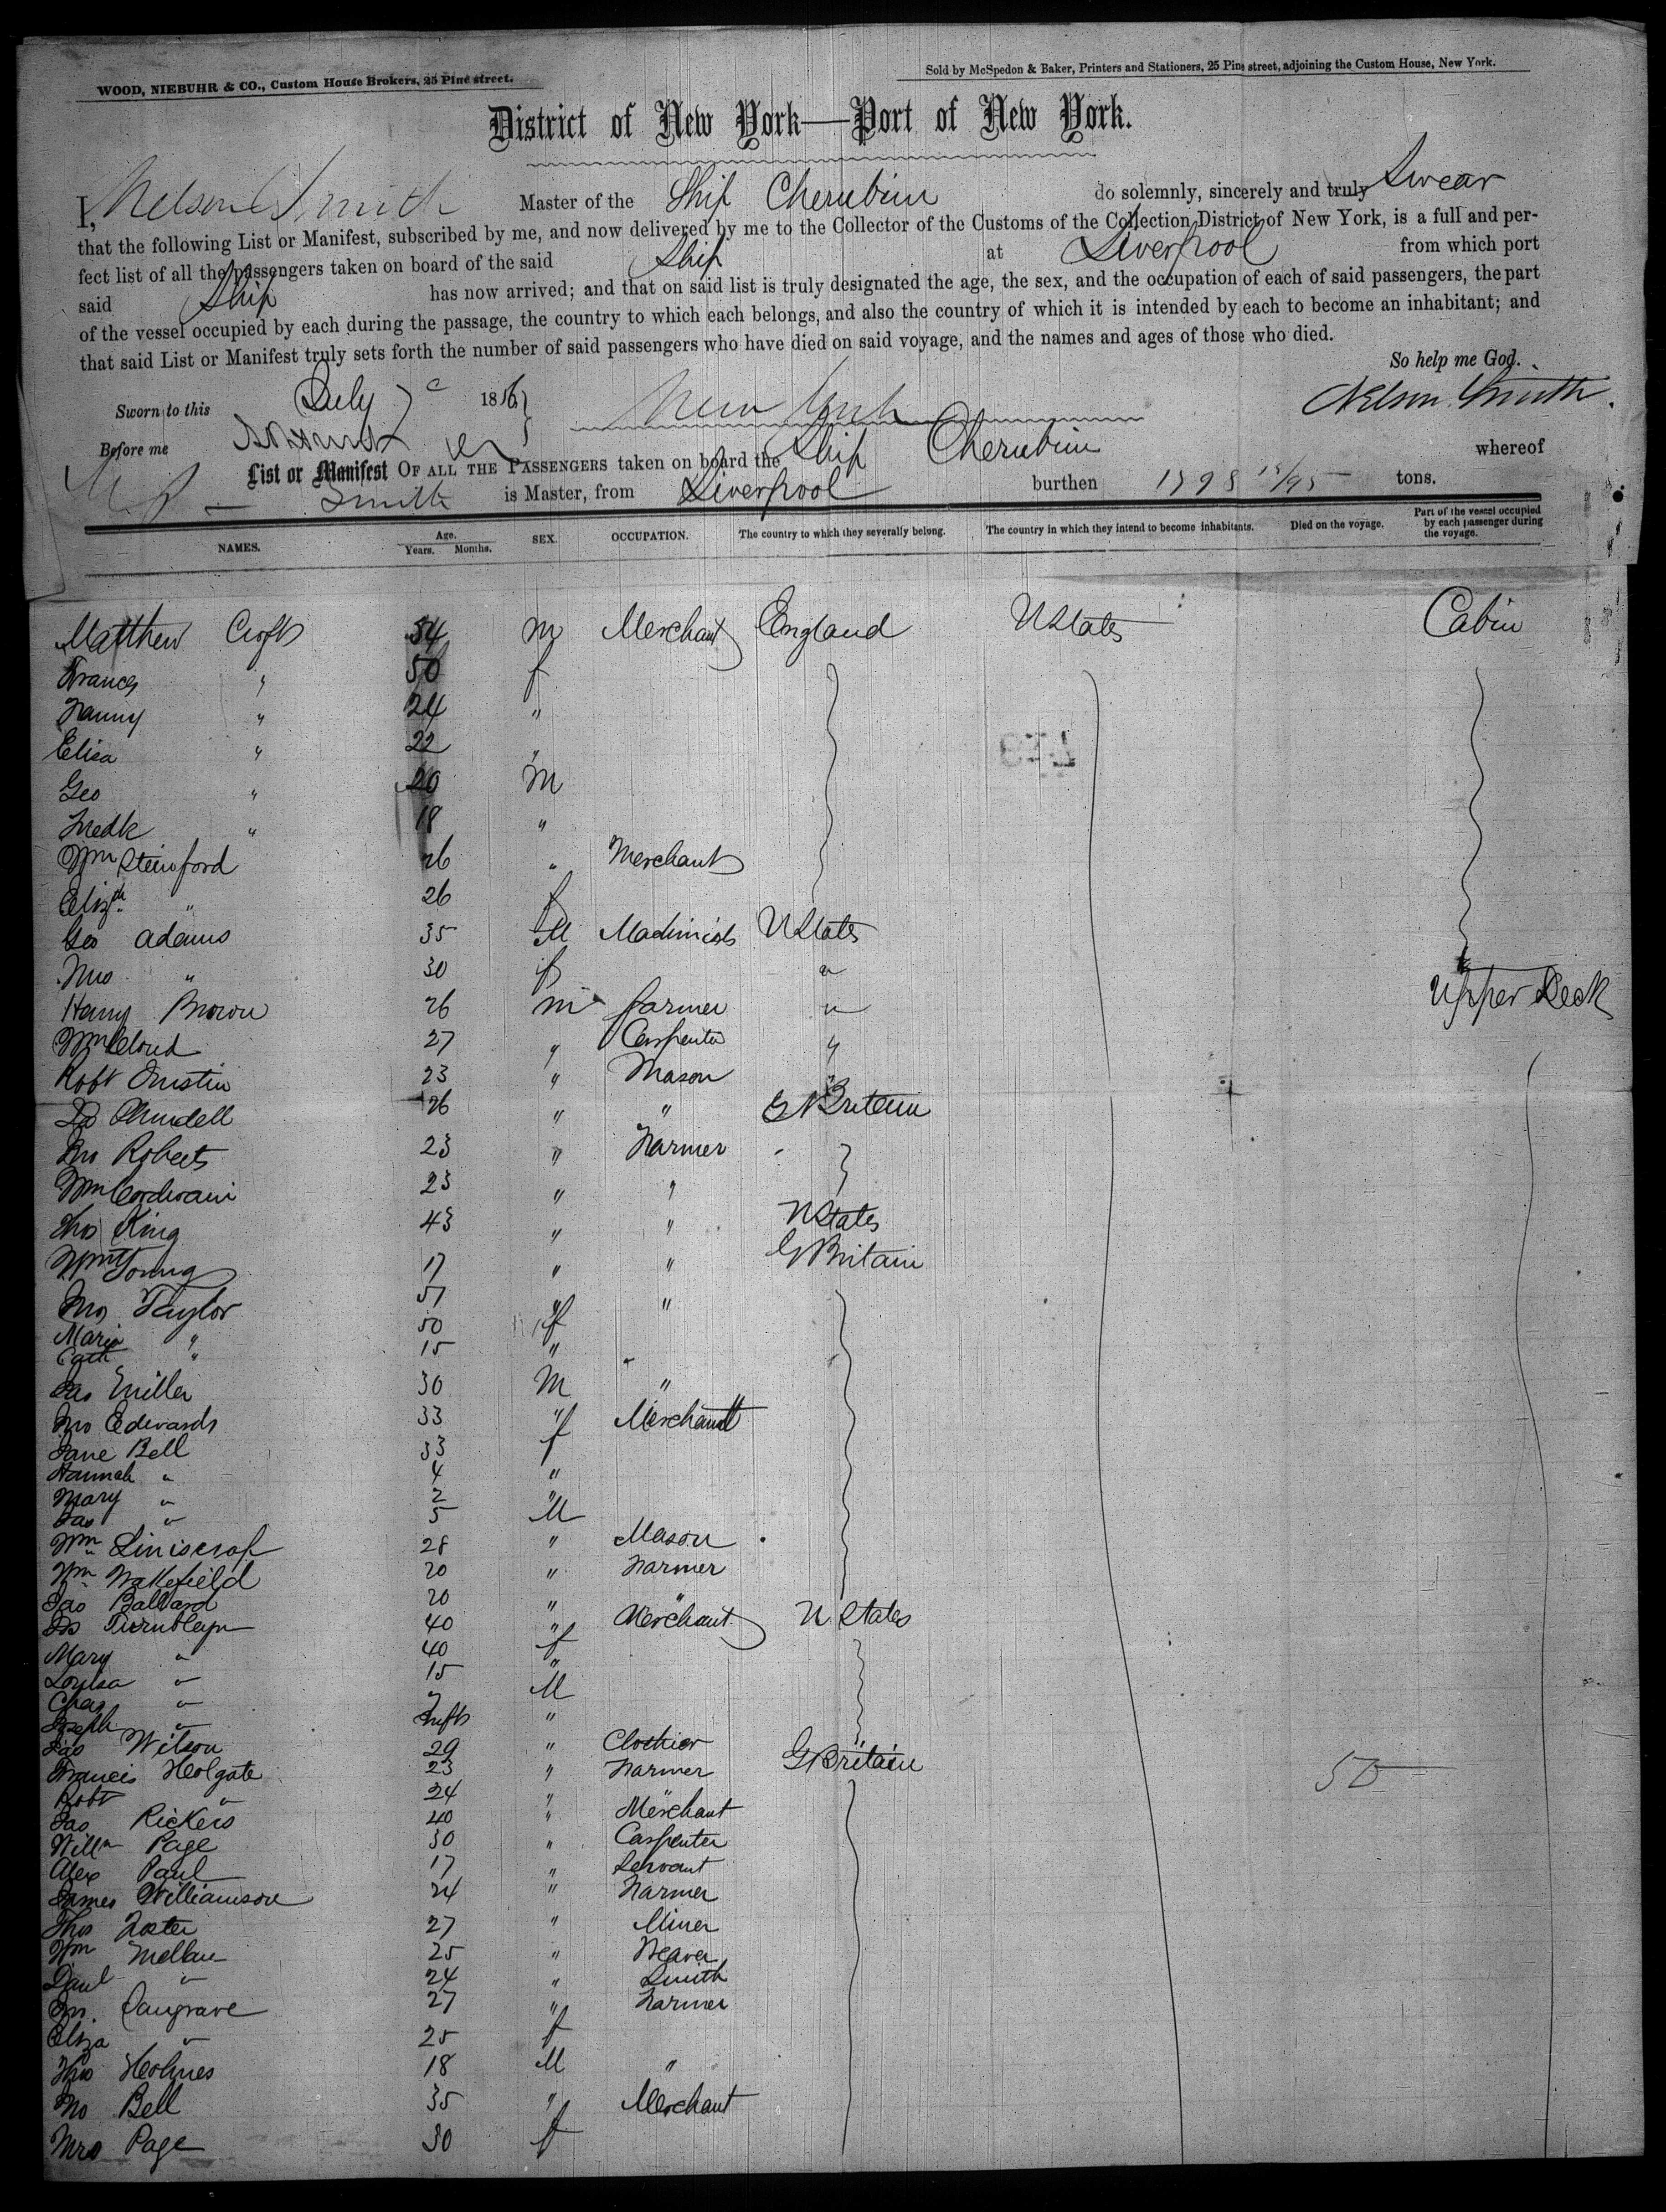 WOOD, NIEBUHR & CO., Custom House Brokers, 25 Pine street.
Sold by McSpedon & Baker, Printers and Stationers, 25 Pine street, adjoining the Custom House, New York.
District of New York—Port of New York.
I, Nelson Smith Master of the Ship Cherubim do solemnly, sincerely and truly Swear
that the following List or Manifest, subscribed by me, and now delivered by me to the Collector of the Customs of the Collection District of New York, is a full and per-
fect list of all the passengers taken on board of the said Ship at Liverpool from which port
said Ship has now arrived; and that on said list is truly designated the age, the sex, and the occupation of each of said passengers, the part
of the vessel occupied by each during the passage, the country to which each belongs, and also the country of which it is intended by each to become an inhabitant; and
that said List or Manifest truly sets forth the number of said passengers who have died on said voyage, and the names and ages of those who died.
So help me God.
Sworn to this July 7 1856 New York Nelson Smith.
Before me
List or Manifest OF ALL THE PASSENGERS taken on board the Ship Cherubim whereof
Smith is Master, from Liverpool burthen tons.
NAMES. Age. Years. Months. SEX. OCCUPATION. The country to which they severally belong. The country in which they intend to become inhabitants. Died on the voyage. Part of the vessel occupied by each passenger during the voyage.
Matthew Crofts 54 m Merchant England U States Cabin
Frances " 50 f
Fanny " 24 "
Eliza " 22 "
Geo " 20 M
Fredk " 18 "
Wm Steinford 26 " Merchant
Elizth " 26 f
Geo Adams 35 M U States
" 30 f "
Harry Brown 26 m farmer " Upper Deck
Wm Cloud 27 " Carpenter "
Robt 23 " Mason "
26 " " G Britain
Jno Roberts 23 " Farmer
Wm 23 " "
Thos King 43 " " U States
Wm Young 17 " " G Britain
Jno Taylor 51 " "
Maria " 50 f
Cath " 15 "
Jas Miller 30 M "
Jno Edwards 33 " Merchant
Jane Bell 33 f
Hannah " 4 "
Mary " 2 "
Jas " 5 M
Wm Liniscrof 28 " Mason
Wm Wakefield 20 " Farmer
Jas Ballard 20 " "
40 " Merchant U States
Mary " 40 f
Louisa " 15 "
Chas " M
Joseph " Inft "
Jas Wilson 29 " Clothier "
Francis Holgate 23 " Farmer G Britain 50
Robt " 24 " "
Jas Rickers 40 " Merchant
Willm Page 30 " Carpenter
Alex Paul 17 " Servant
James Williamson 24 " Farmer
Thos Foster 27 " Miner
Wm Mellan 25 " Weaver
" 24 " Smith
Jno. 27 " Farmer
Eliza " 25 f
Thos Holmes 18 M "
Jno Bell 35 " Merchant
Mrs Page 30 f